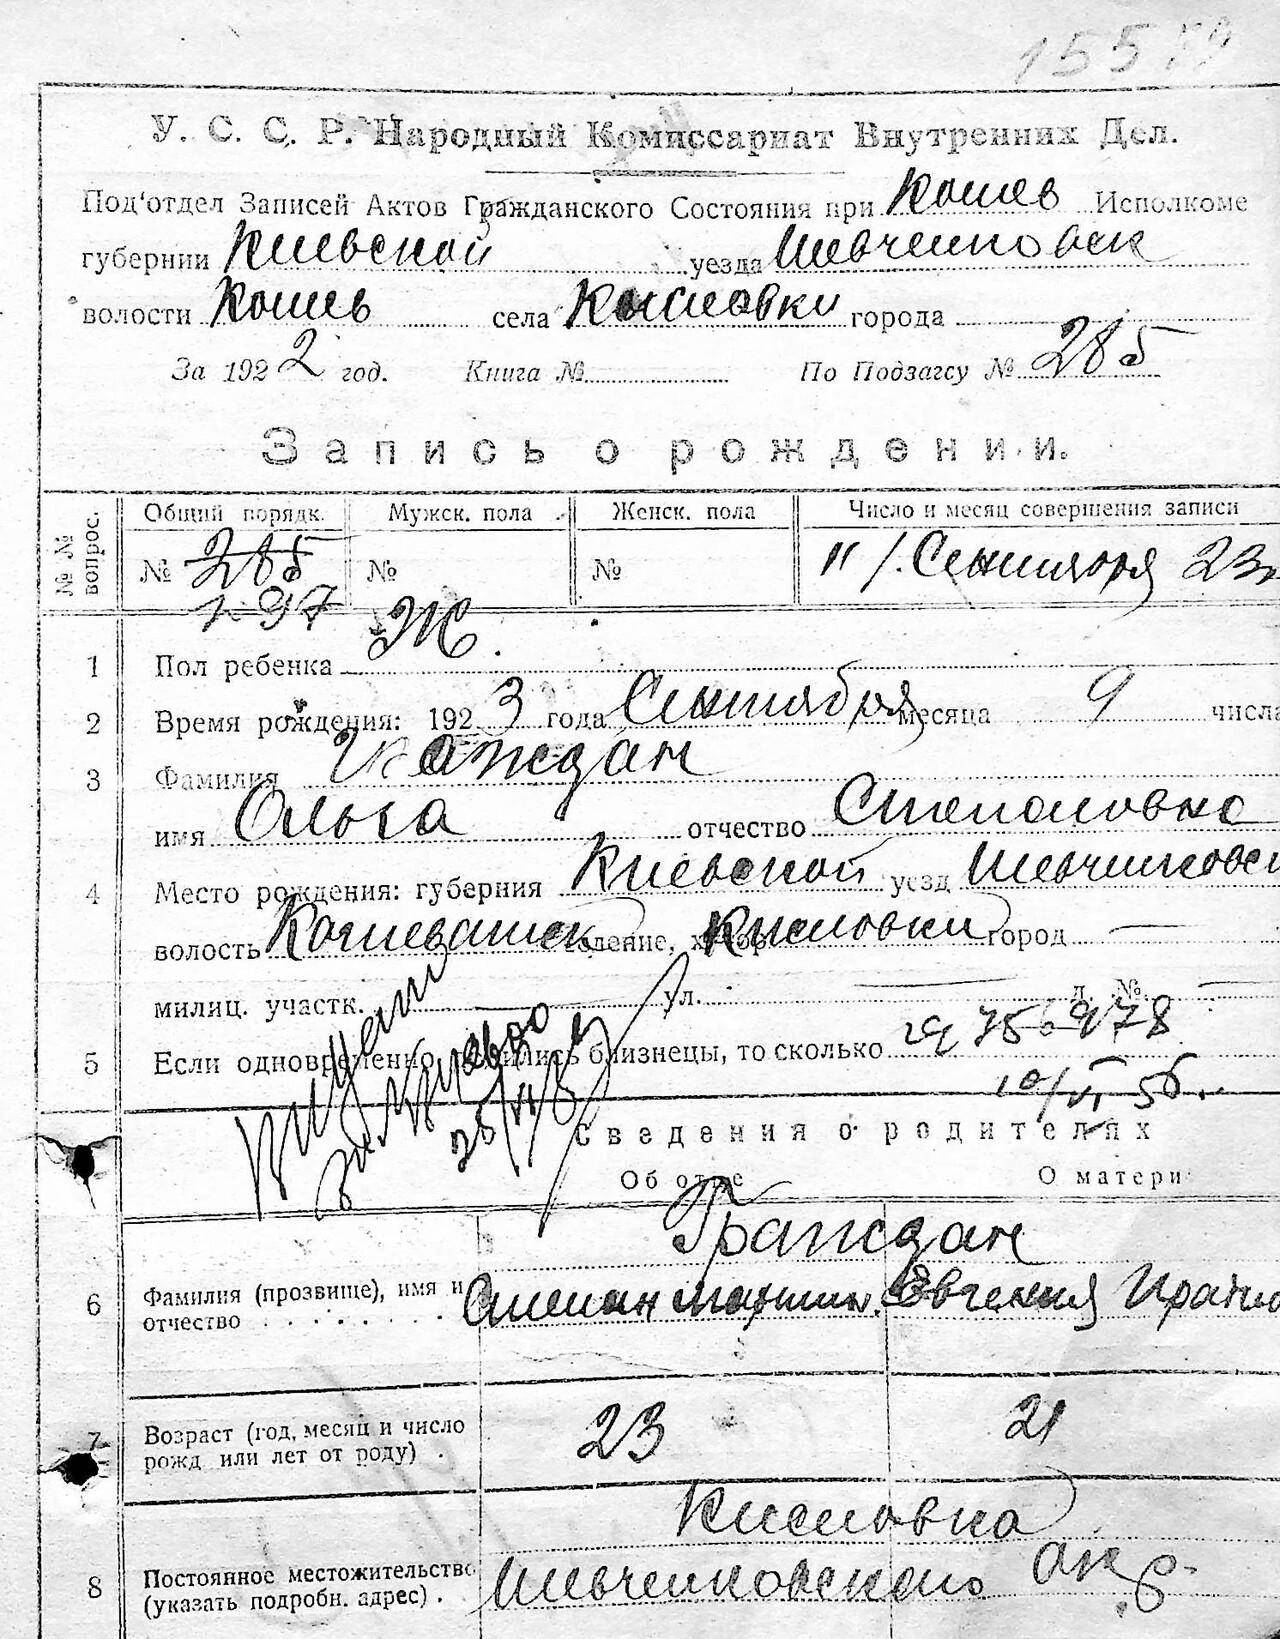 155
У. С. С. Р. Народный Комиссариат Внутренних Дел.
Под'отдел Записей Актов Гражданского Состояния при Кошев Исполкоме
губернии Киевской уезда Шевченковск
волости Кошев села Кысловки города
За 1922 год. Книга № По Подзагсу № 285
Запись о рождении.
№ № вопрос. Общий порядк. Мужск. пола Женск. пола Число и месяц совершения записи
№ 285 № № 11/. Сентября 23
197
1 Пол ребенка Ж.
2 Время рождения: 1923 года Сентября месяца 9 числа
3 Фамилия Граждан
имя Ольга отчество Степановна
4 Место рождения: губерния Киевской уезд Шевченковск
волость Кошеватск селение, хутор Кысловки город —
милиц. участк. — ул. — д. № —
5 Если одновременно родились близнецы, то сколько
10/VI 56.
Сведения о родителях
Об отце О матери
Граждан
6 Фамилия (прозвище), имя и отчество Степан Мартин. Евгения
7 Возраст (год, месяц и число рожд или лет от роду) 23 21
Кисловка
8 Постоянное местожительство (указать подробн. адрес) Шевченковского окр.